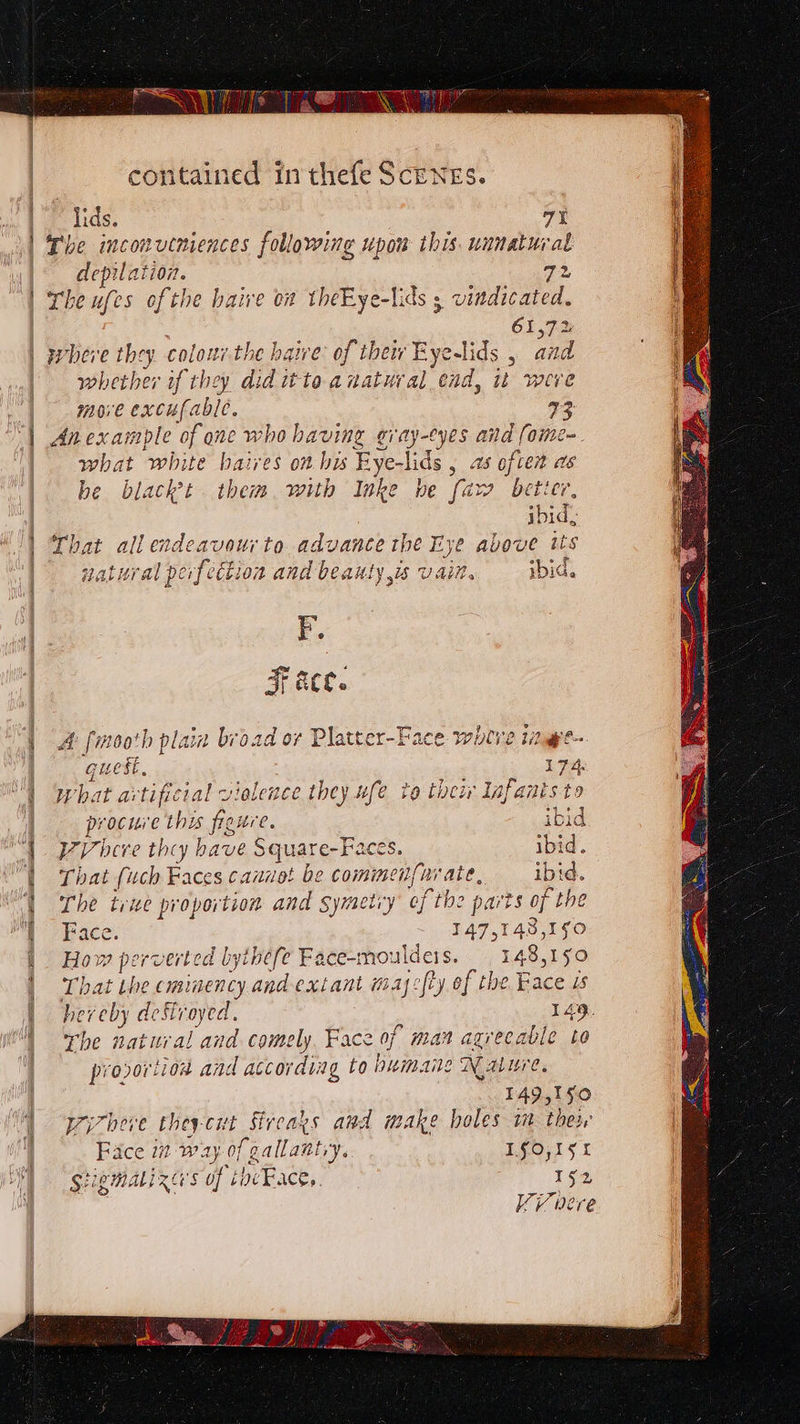 contained in theſe SCENES.
lids. 71
The inconveniences following upon this unnatural
depilation. 72
The uſes of the haire on theEye-lids ; vindicated.
61,72
Where they colour the haire of their Eye-lids , and
whether if they did it to a natural end, it were
more excuſable. 73
An example of one who having gray-eyes and ſome-
what white haires on his Eye-lids , as often as
he black't them with Inke he ſaw better.
ibid.
That all endeavour to advance the Eye above its
natural perfection and beauty,is vain. ibid.
F.
Face.
A ſmooth plain broad or Platter-Face where in
queſt. 174
What artificial violence they uſe to their Infants to
procure this figure. ibid
VVhere they have Square-Faces. ibid.
That ſuch Faces cannot be commenſurate. ibid.
The true proportion and Symetry of the parts of the
Face. 147,148,150
How perverted bytheſe Face-moulders. 148,150
That the eminency and extant majeſty of the Face is
hereby deſtroyed. 149.
The natural and comely Face of man agreeable to
proportion and according to humane Nature.
149,150
VVhere they cut ſtreaks and make holes in their
Face in way of gallantry. 150,151
Stigmatizers of theFace. 152
VVhere